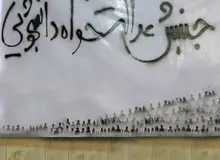 جنبش عدالتخواه دانشجویی